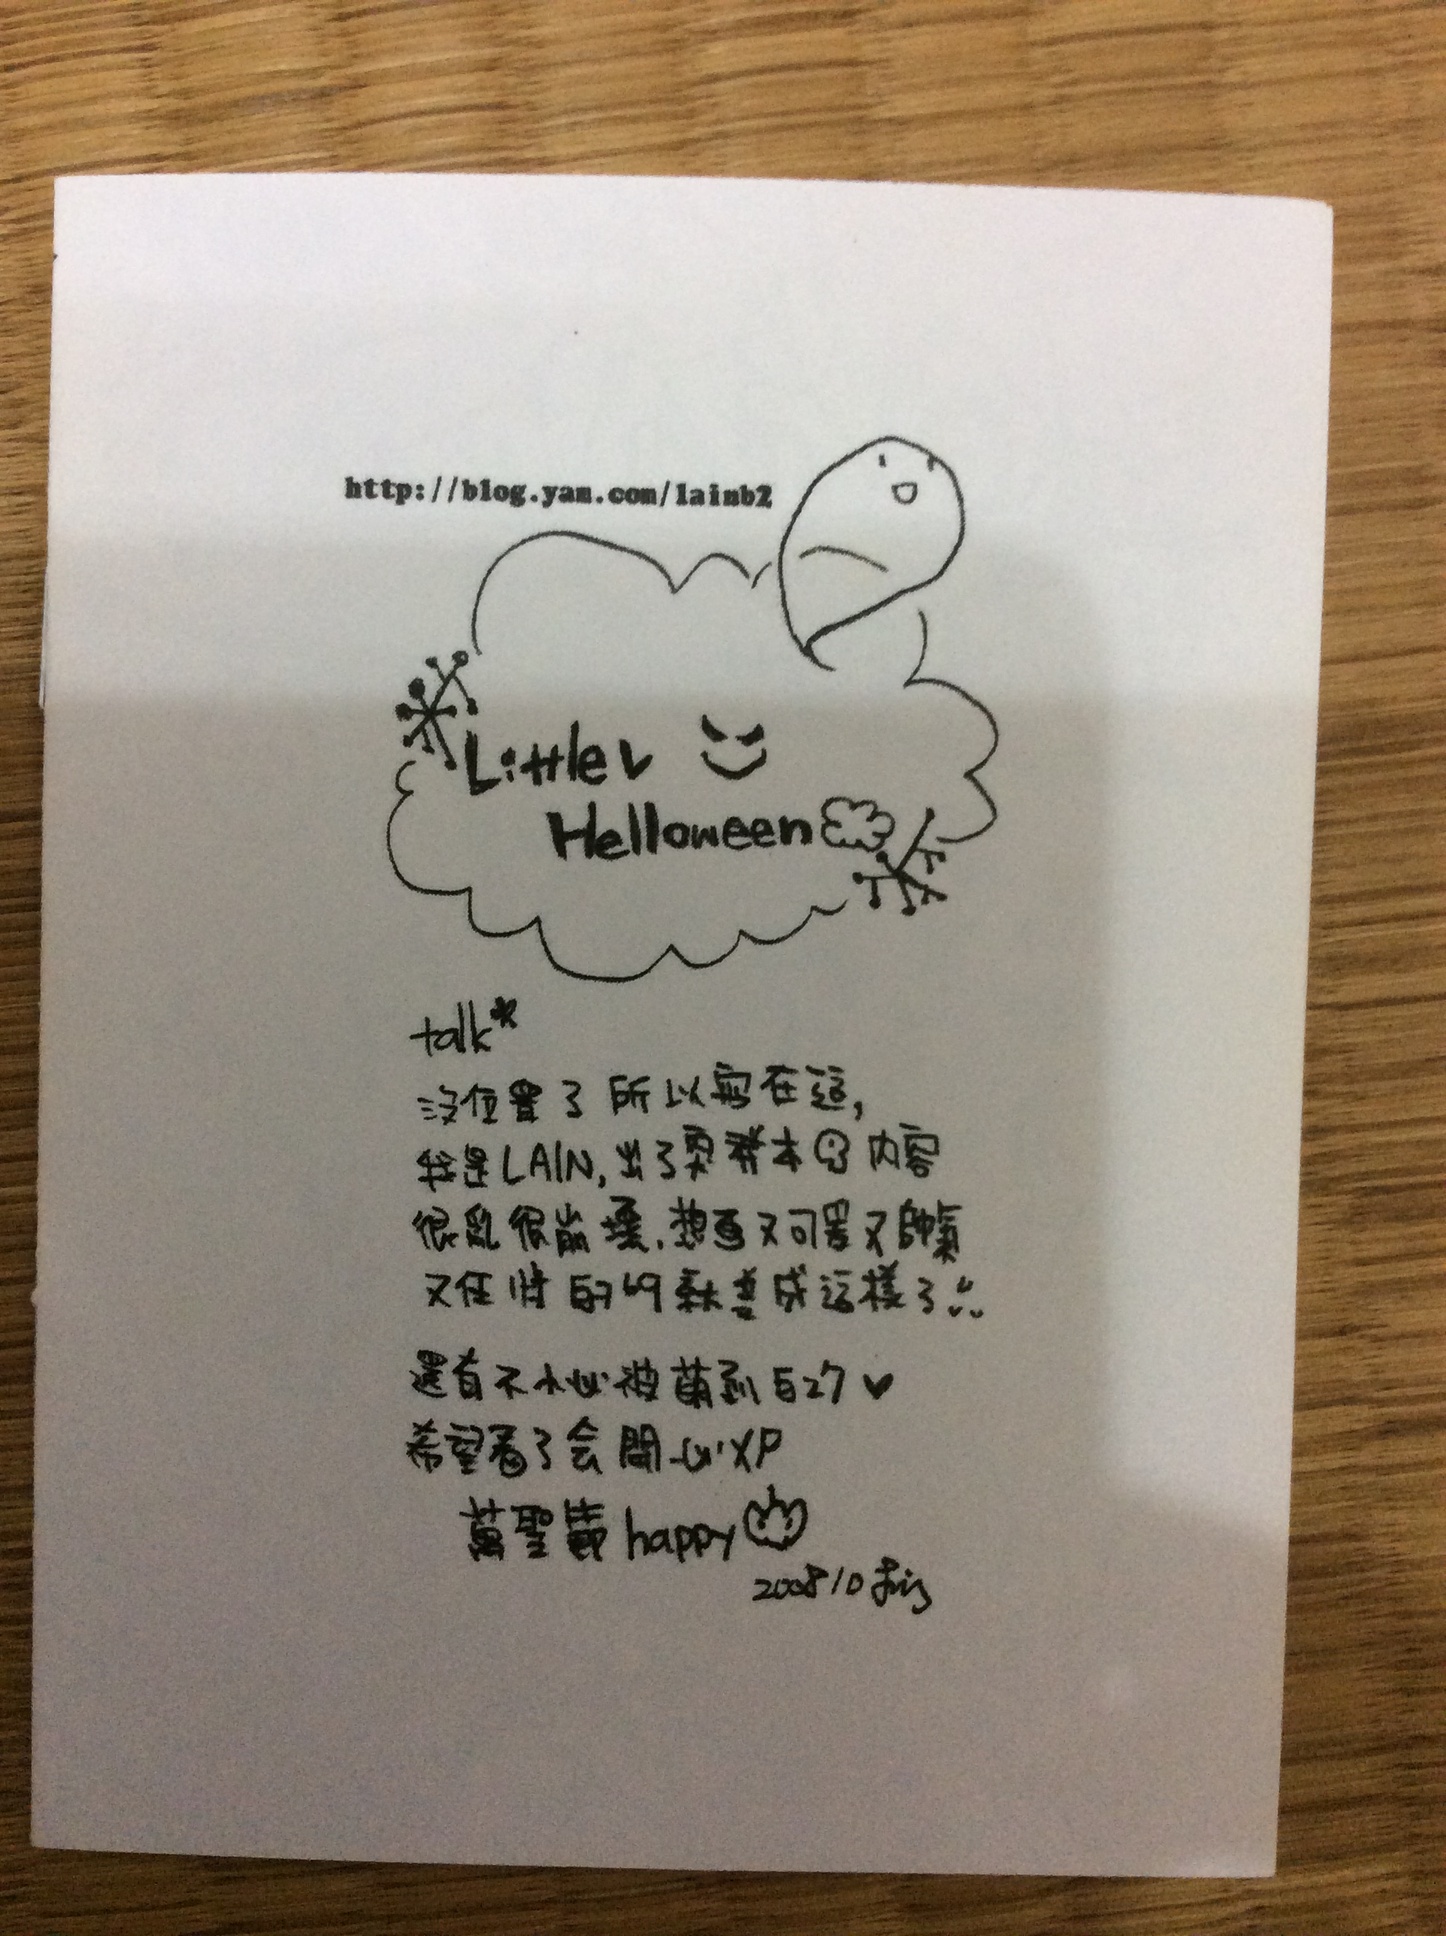 http://blog.yam.com/lainb2
Little
Helloween
talk*
沒位置了所以寫在這,
我是LAIN,出了突發本 內容
很亂很崩壞.想畫又可愛又帥氣
又任性的69 變成這樣了
還有不小心被萌到自27♥
希望看了会開心XP
萬聖節happy
2008 10